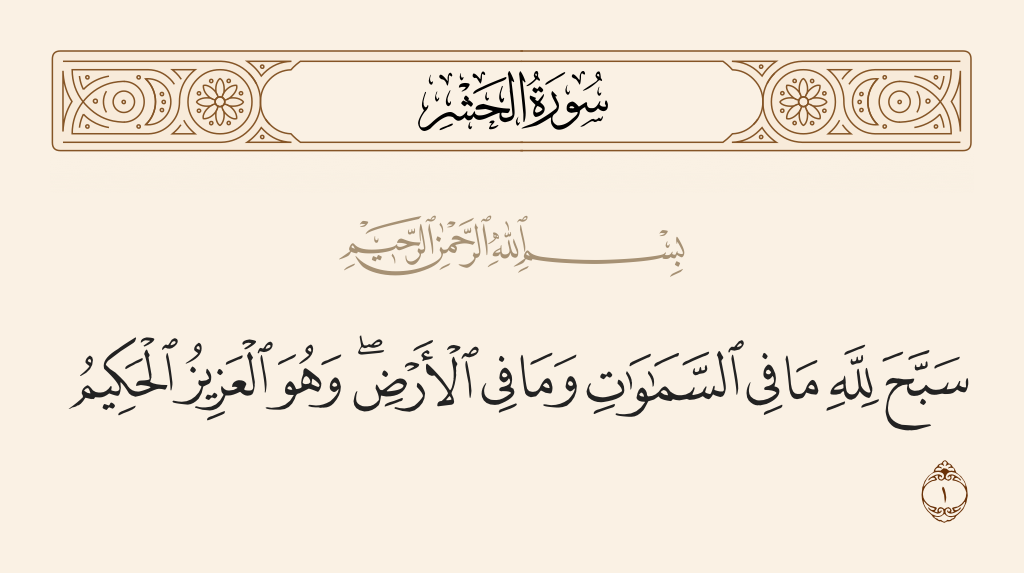 سُورَةُ الحَشْرِ
بِسْمِ ٱللَّهِ ٱلرَّحْمَٰنِ ٱلرَّحِيمِ
سَبَّحَ لِلَّهِ مَا فِي ٱلسَّمَٰوَٰتِ وَمَا فِي ٱلْأَرْضِۖ وَهُوَ ٱلْعَزِيزُ ٱلْحَكِيمُ
١